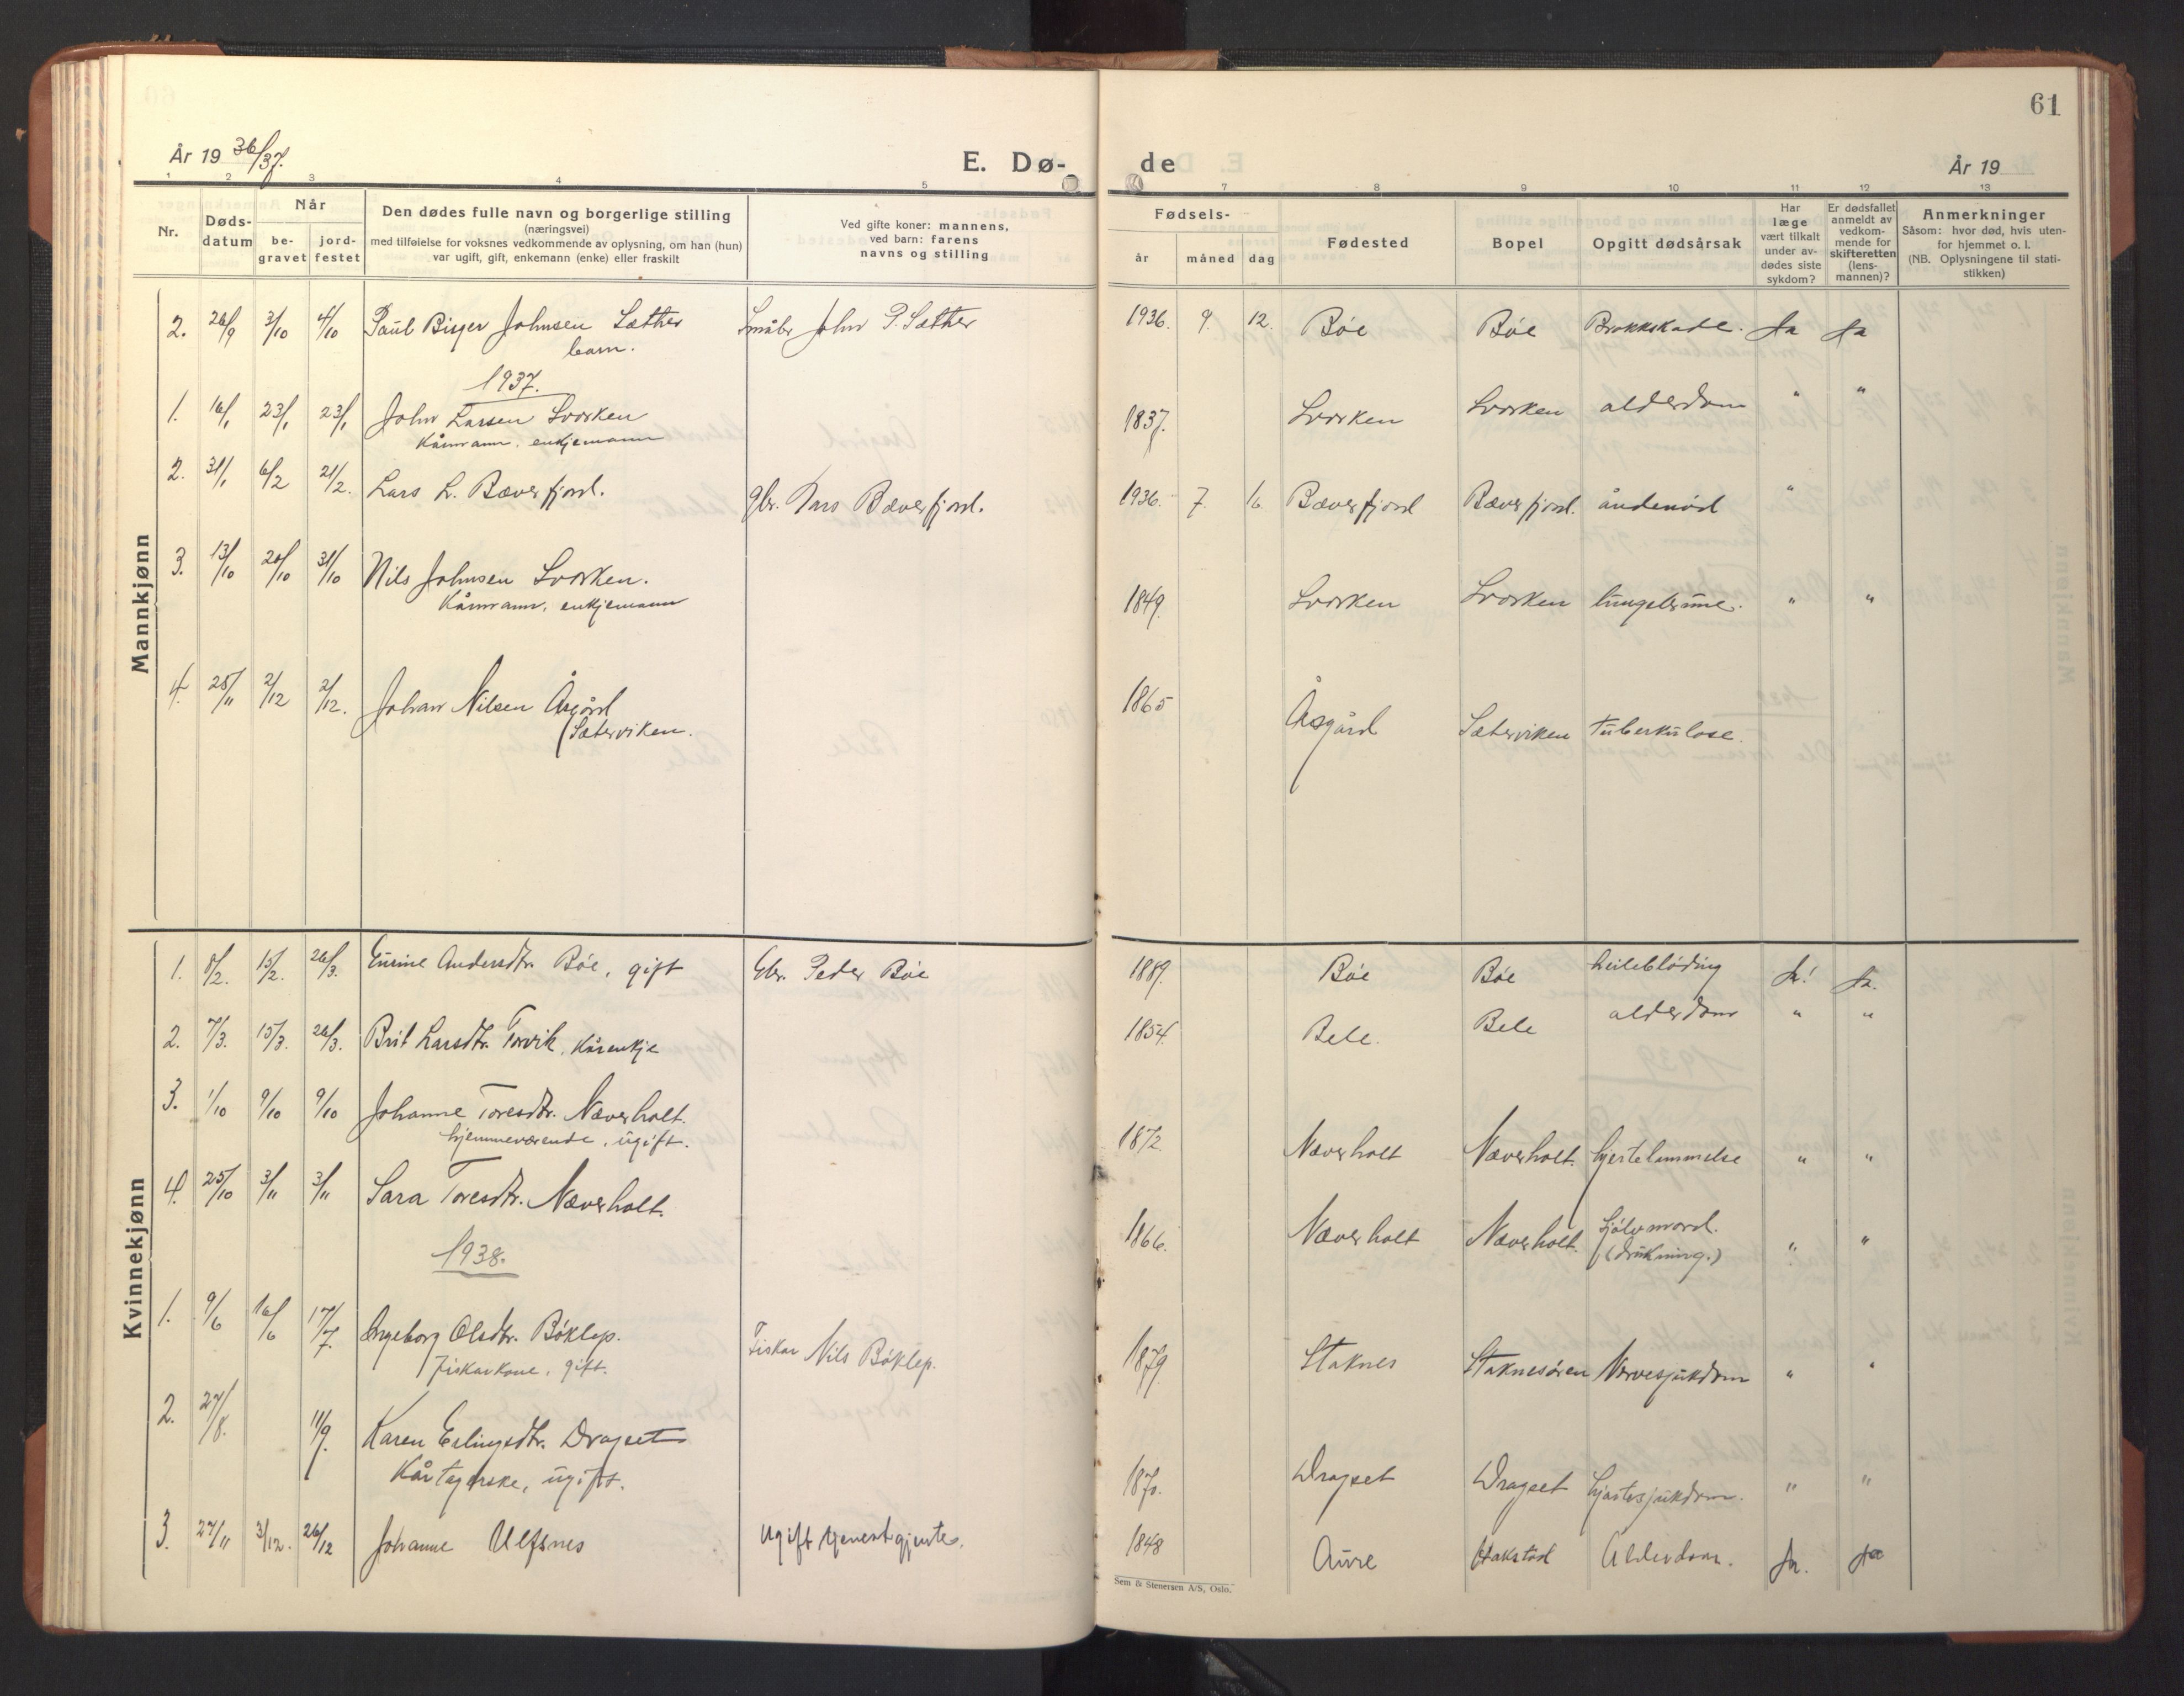 61
År 19 36/37.
E. Dø- de
År 19
1 2 3 4 5 7 8 9 10 11 12 13
Nr.
Døds-
datum
Når
be-
gravet
jord-
festet
Den dødes fulle navn og borgerlige stilling
(næringsvei)
med tilføielse for voksnes vedkommende av oplysning, om han (hun)
var ugift, gift, enkemann (enke) eller fraskilt
Ved gifte koner: mannens,
ved barn: farens
navns og stilling
Fødsels-
år måned dag
Fødested
Bopel
Opgitt dødsårsak
Har
læge
vært tilkalt
under av-
dødes siste
sykdom?
Er dødsfallet
anmeldt av
vedkom-
mende for
skifteretten
(lens-
mannen)?
Anmerkninger
Såsom: hvor død, hvis uten-
for hjemmet o. l.
(NB. Oplysningene til stati-
stikken)
Mannkjønn
2. 26/9 3/10 4/10 Paul Birger Johnsen Sæther Småbr John P. Sæther 1936. 9. 12. Bøe Bøe Brokkskade. Ja Ja
barn.
1937.
1. 16/1 23/1 23/1 John Larsen Svorken 1837. Svorken Svorken alderdom " "
Kårmann, enkjemann
2. 31/1 6/2 21/2. Lars L. Bæverfjord. gbr. Lars Bæverfjord. 1936. 7. 16 Bæverfjord Bæverfjord. åndenød "
3. 13/10 20/10 31/10 Nils Johnsen Svorken. 1849. Svorken Svorken lungebetennelse " "
Kårmann, enkjemann
4. 25/11 2/12 2/12. Johan Nilsen Åsgård 1865 Åsgård Sæterviken Tuberkulose.
(Sæterviken.
Kvinnekjønn
1. 8/2. 15/2. 26/3. Eurine Andersdtr. Bøe, gift Gbr. Peder Bøe 1889. Bøe Bøe heileblöding Ja! Ja.
2. 7/3. 15/3. 26/3. Brit Larsdtr. Torvik, Kårenkje 1854. Bele. Bele alderdom " "
3. 1/10 9/10 9/10 Johanne Toresdtr. Næverholt. 1872. Næverholt Næverholt. hjertelammelse " "
hjemmeværende, ugift.
4. 25/10 3/11 3/11 Sara Toresdtr. Næverholt. 1866. Næverholt Næverholt. Sjölvmord. " "
(drukning.)
1938.
1. 9/6 16/6 17/7. Ingeborg Olsdtr. Böklep. Fiskar Nils Böklep. 1879. Staknes Staknesøren Nervesjukdom " "
Fiskarkone, gift.
2. 27/8. 11/9. Karen Erlingsdtr. Dragset 1870. Dragset Dragset hjartesjukdom. " "
Kårtagerske, ugift.
3. 27/11 3/12. 26/12 Johanne Ulfsnes Ugift tjenestgjente. 1848 Aure Hakstad Alderdom. Ja. Ja
Sem & Stenersen A/S, Oslo.